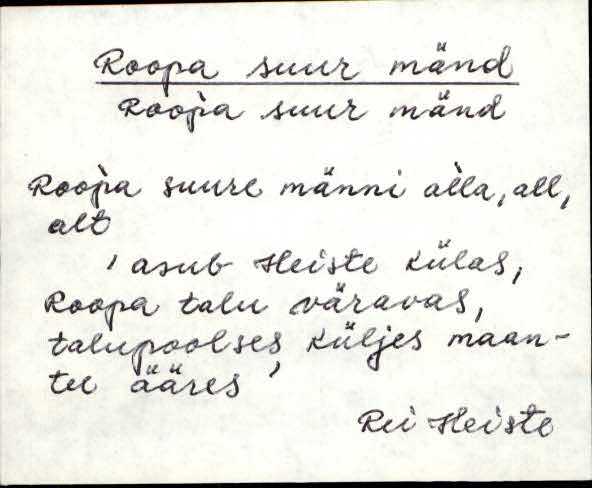 Roopa suur mänd
Roop̀a suur mänd
Roop̀a suure männi al̀la, all,
alt
' asub Heiste külas,
Roopa talu väravas,
talupoolses küljes maan-
tee ääres '
Rei Heiste